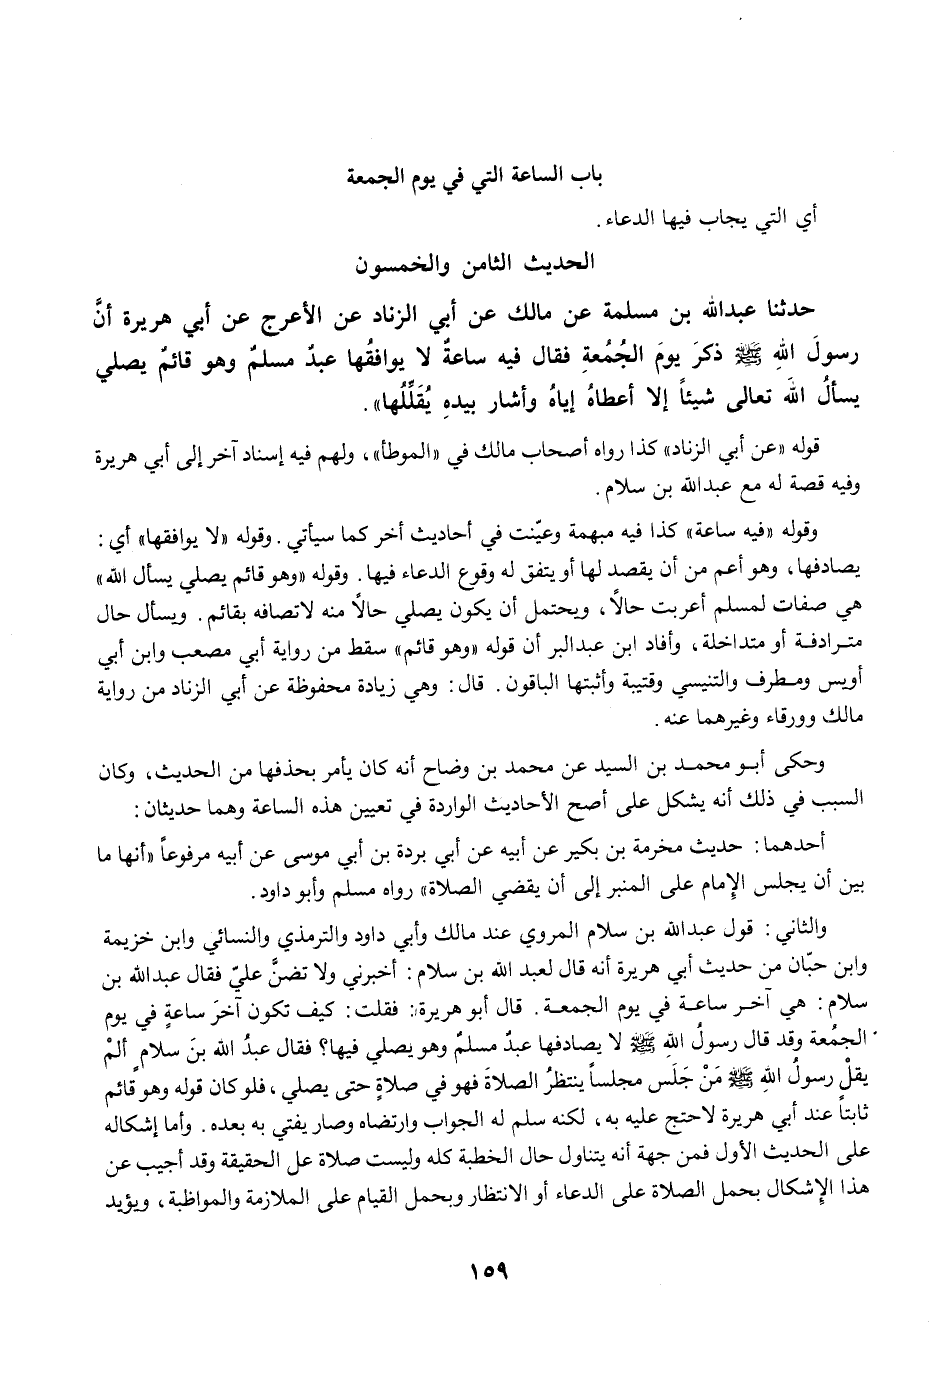 باب الساعة التي في يوم الجمعة
أي التي يجاب فيها الدعاء .
الحديث الثامن والخمسون
حدثنا عبدالله بن مسلمة عن مالك عن أبي الزناد عن الأعرج عن أبي هريرة أنَّ
رسولَ اللهِ ﷺ ذكرَ يومَ الجُمُعةِ فقال فيه ساعةٌ لا يوافقُها عبدٌ مسلمٌ وهو قائمٌ يصلي
يسألُ اللهَ تعالى شيئاً إلا أعطاهُ إياهُ وأشار بيدهِ يُقَلِّلُها» .
قوله «عن أبي الزناد» كذا رواه أصحاب مالك في «الموطأ» ، ولهم فيه إسناد آخر إلى أبي هريرة
وفيه قصة له مع عبدالله بن سلام .
وقوله «فيه ساعة» كذا فيه مبهمة وعيّنت في أحاديث أخر كما سيأتي . وقوله «لا يوافقها» أي :
يصادفها ، وهو أعم من أن يقصد لها أو يتفق له وقوع الدعاء فيها . وقوله «وهو قائم يصلي يسأل الله»
هي صفات لمسلم أعربت حالاً ، ويحتمل أن يكون يصلي حالاً منه لاتصافه بقائم . ويسأل حال
مترادفة أو متداخلة ، وأفاد ابن عبدالبر أن قوله «وهو قائم» سقط من رواية أبي مصعب وابن أبي
أويس ومطرف والتنيسي وقتيبة وأثبتها الباقون . قال : وهي زيادة محفوظة عن أبي الزناد من رواية
مالك وورقاء وغيرهما عنه .
وحكى أبو محمد بن السيد عن محمد بن وضاح أنه كان يأمر بحذفها من الحديث ، وكان
السبب في ذلك أنه يشكل على أصح الأحاديث الواردة في تعيين هذه الساعة وهما حديثان :
أحدهما : حديث مخرمة بن بكير عن أبيه عن أبي بردة بن أبي موسى عن أبيه مرفوعاً «أنها ما
بين أن يجلس الإمام على المنبر إلى أن يقضي الصلاة» رواه مسلم وأبو داود .
والثاني : قول عبدالله بن سلام المروي عند مالك وأبي داود والترمذي والنسائي وابن خزيمة
وابن حبّان من حديث أبي هريرة أنه قال لعبد الله بن سلام : أخبرني ولا تضنَّ عليّ فقال عبدالله بن
سلام : هي آخر ساعة في يوم الجمعة . قال أبو هريرة : فقلت : كيف تكون آخرَ ساعةٍ في يوم
الجمُعة وقد قال رسولُ اللهِ ﷺ لا يصادفها عبدٌ مسلمٌ وهو يصلي فيها؟ فقال عبدُ الله بنَ سلام ٍ ألمْ
يقلْ رسولُ اللهِ ﷺ مَنْ جَلَس مجلساً ينتظرُ الصلاةَ فهو في صلاةٍ حتى يصلي ، فلو كان قوله وهو قائم
ثابتاً عند أبي هريرة لاحتج عليه به ، لكنه سلم له الجواب وارتضاه وصار يفتي به بعده . وأما إشكاله
على الحديث الأول فمن جهة أنه يتناول حال الخطبة كله وليست صلاة عل الحقيقة وقد أجيب عن
هذا الإشكال بحمل الصلاة على الدعاء أو الانتظار وبحمل القيام على الملازمة والمواظبة ، ويؤيد
١٥٩